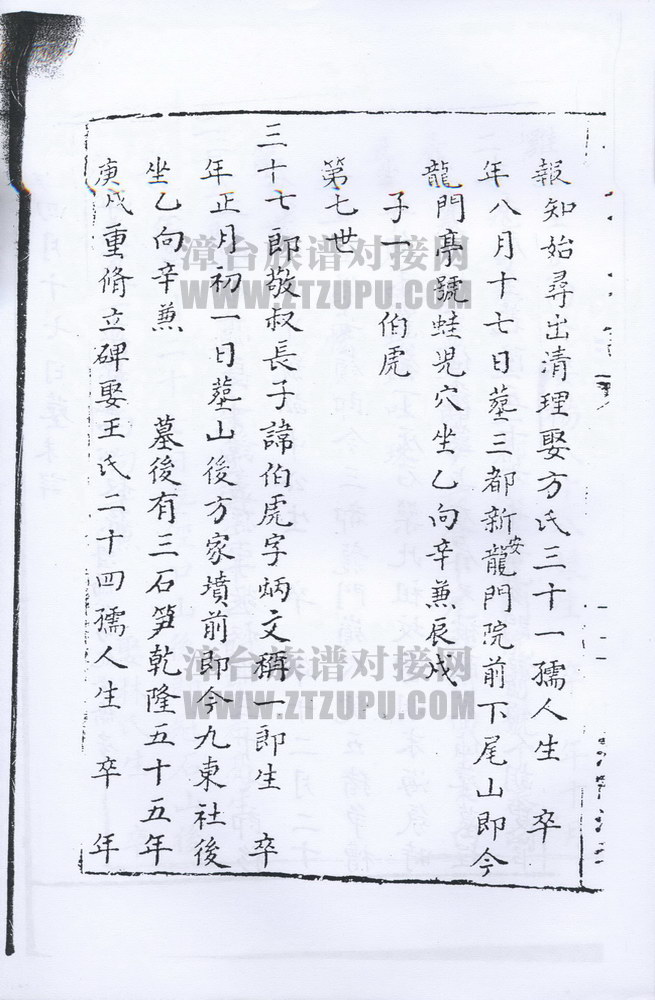 報知始尋出清理娶方氏三十一孺人生 卒
年八月十七日墓三都新安龍門院前下尾山即今
龍門亭號蛙児穴坐乙向辛兼辰戌
子一 伯虎
第七世
三十七郎敬叔長子諱伯虎字炳文稱一郎生 卒
年正月初一日墓山後方家墳前即今九東社後
坐乙向辛兼 墓後有三石笋乾隆五十五年
庚戌重脩立碑娶王氏二十四孺人生 卒 年
漳台族谱对接网
WWW.ZTZUPU.COM
漳台族谱对接网
WWW.ZTZUPU.COM